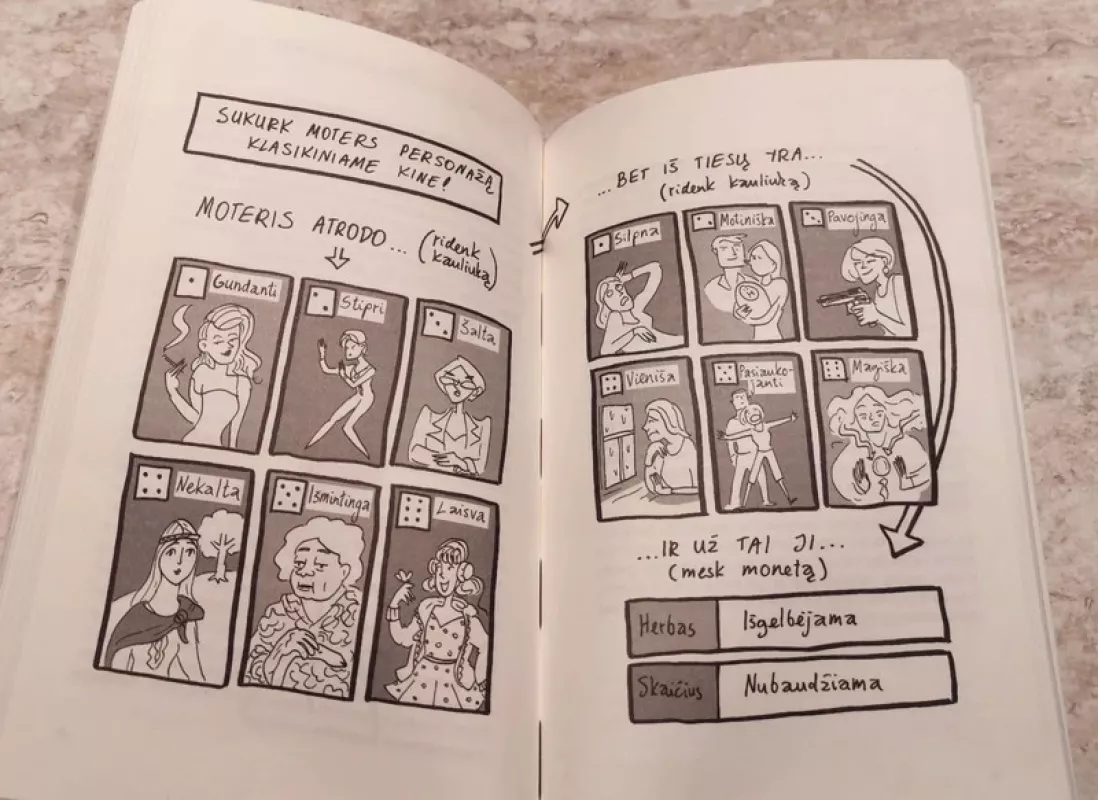 SUKURK MOTERS PERSONAŽĄ
KLASIKINIAME KINE!
MOTERIS ATRODO... (ridenk
kauliuką)
Gundanti
Stipri
Šalta
Nekalta
Išmintinga
Laisva
...BET IŠ TIESŲ YRA...
(ridenk kauliuką)
Silpna
Motiniška
Pavojinga
Vieniša
Pasiauko-
janti
Magiška
...IR UŽ TAI JI...
(mesk monetą)
Herbas
Išgelbėjama
Skaičius
Nubaudžiama